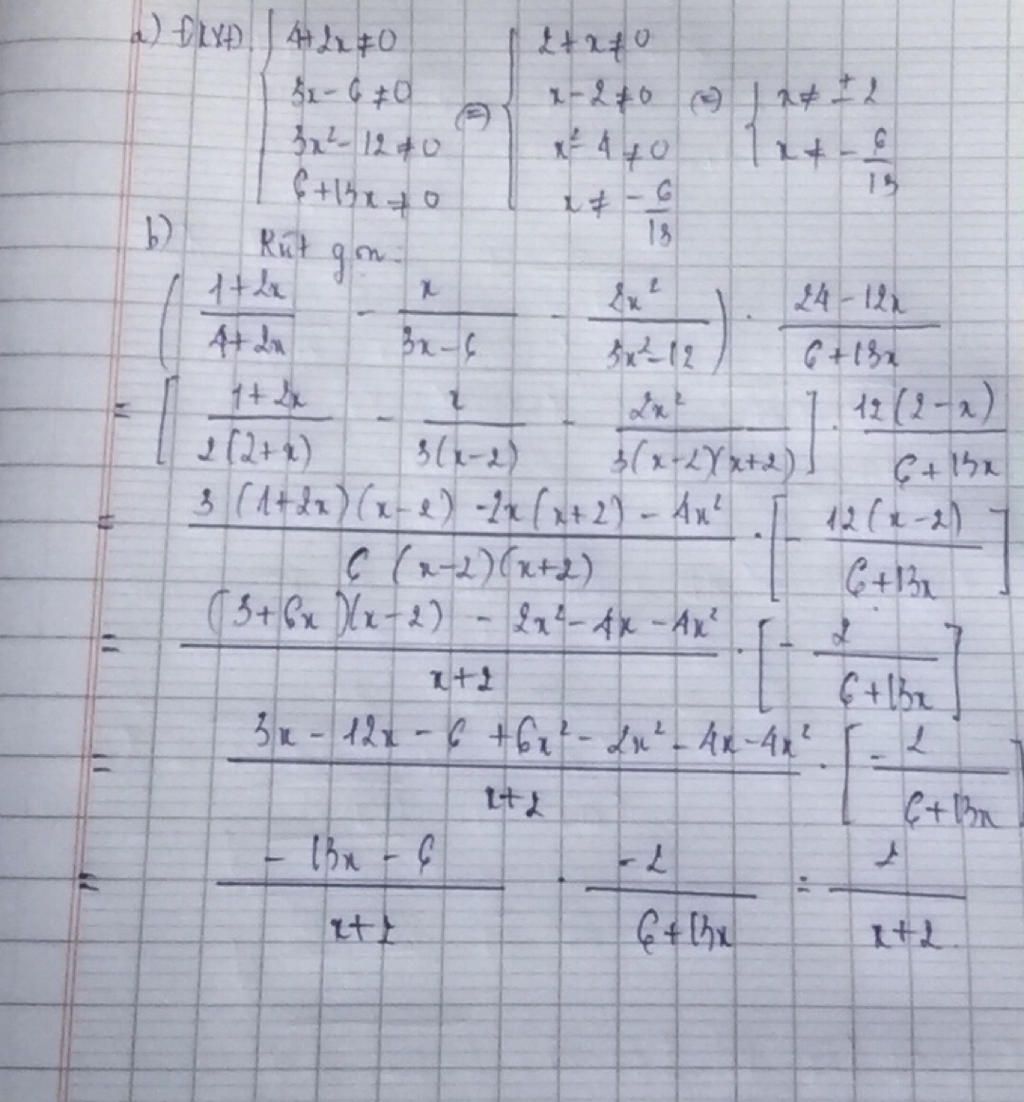 a) ĐKXĐ { 4+2x≠0 { 2+x≠0
3x-6≠0 (=) x-2≠0 (=) { x≠±2
3x²-12≠0 x²-4≠0 x≠-6/13
6+13x≠0 x≠-6/13
b) Rút gọn.
( (1+2x)/(4+2x) - x/(3x-6) - 2x²/(3x²-12) ) · (24-12x)/(6+13x)
= [ (1+2x)/(2(2+x)) - x/(3(x-2)) - 2x²/(3(x-2)(x+2)) ] · 12(2-x)/(6+13x)
= (3(1+2x)(x-2) -2x(x+2) - 4x²)/(6(x-2)(x+2)) · [ - 12(x-2)/(6+13x) ]
= ((3+6x)(x-2) - 2x² - 4x - 4x²)/(x+2) · [ - 2/(6+13x) ]
= (3x - 12x - 6 + 6x² - 2x² - 4x - 4x²)/(x+2) · [ - 2/(6+13x) ]
= (-13x - 6)/(x+2) · -2/(6+13x) = 2/(x+2)